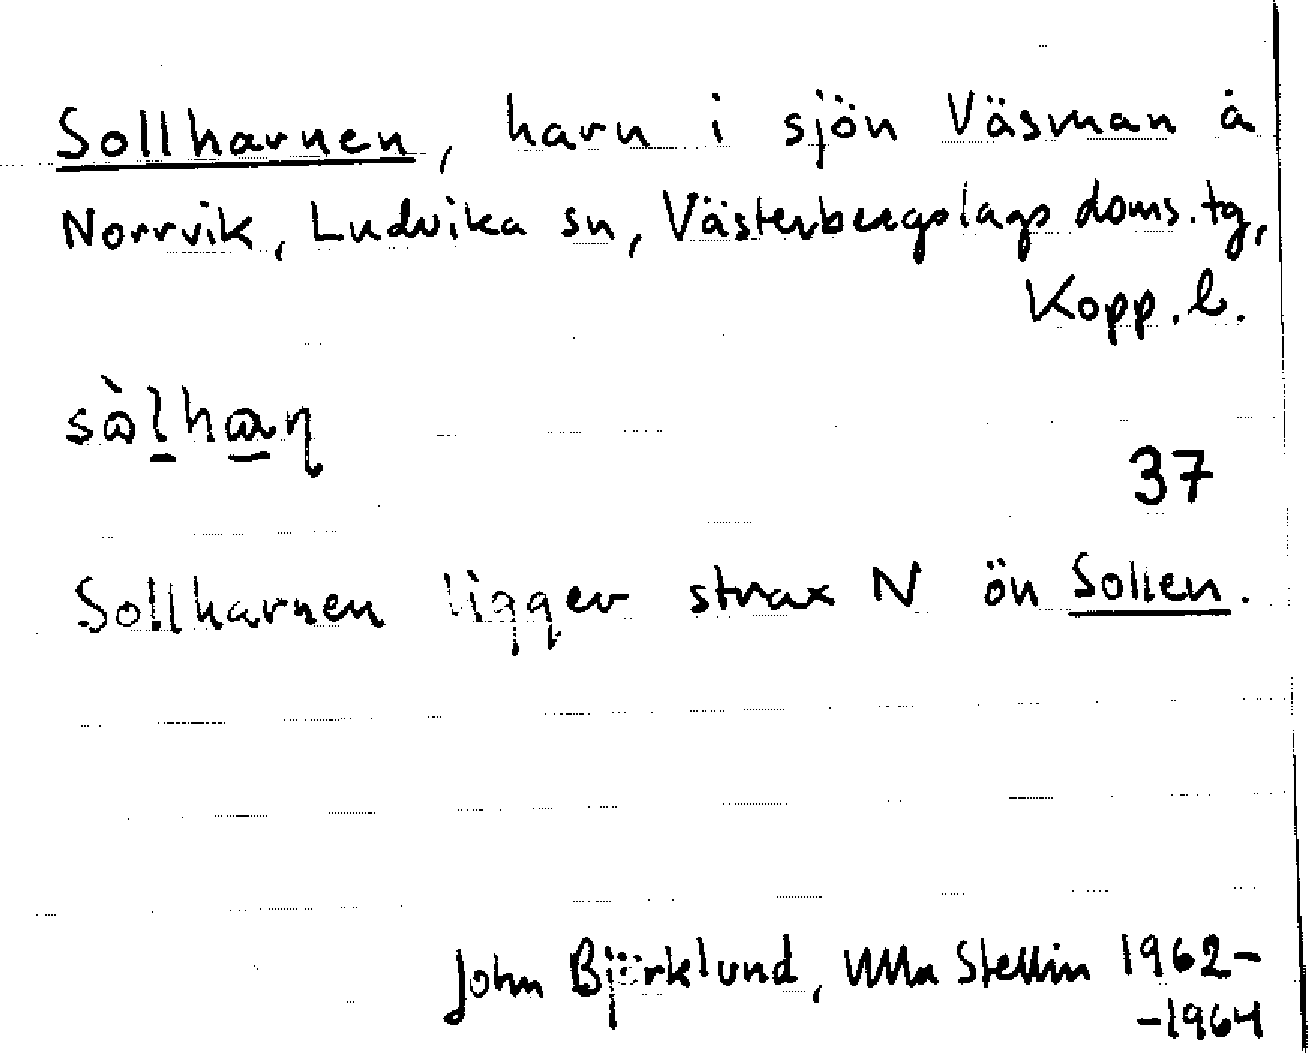 Sollharnen, harn i sjön Väsman å
Norrvik, Ludvika sn, Västerbergslags doms.tg,
Kopp.l.
37
Sollharnen ligger strax N ön Sollen.
John Björklund, Ulla Stellin 1962-
-1964